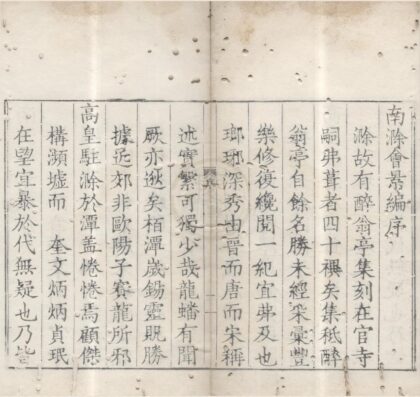 南滁會景編序
滁故有醉翁亭集刻在官寺
嗣弗葺者四十禩矣集秪醉
翁亭自餘名勝未經采彙豐
樂修復纔閱一紀宜弗及也
瑯琊深秀由晉而唐而宋稱
述實繁可獨少哉龍蟠有聞
厥亦逖矣栢潭歲錫靈貺勝
據近郊非歐陽子賽龍所邪
高皇駐滁於潭蓋惓惓焉顧傑
構瀕墟而 奎文炳炳貞珉
在望宜暴於代無疑也乃皆